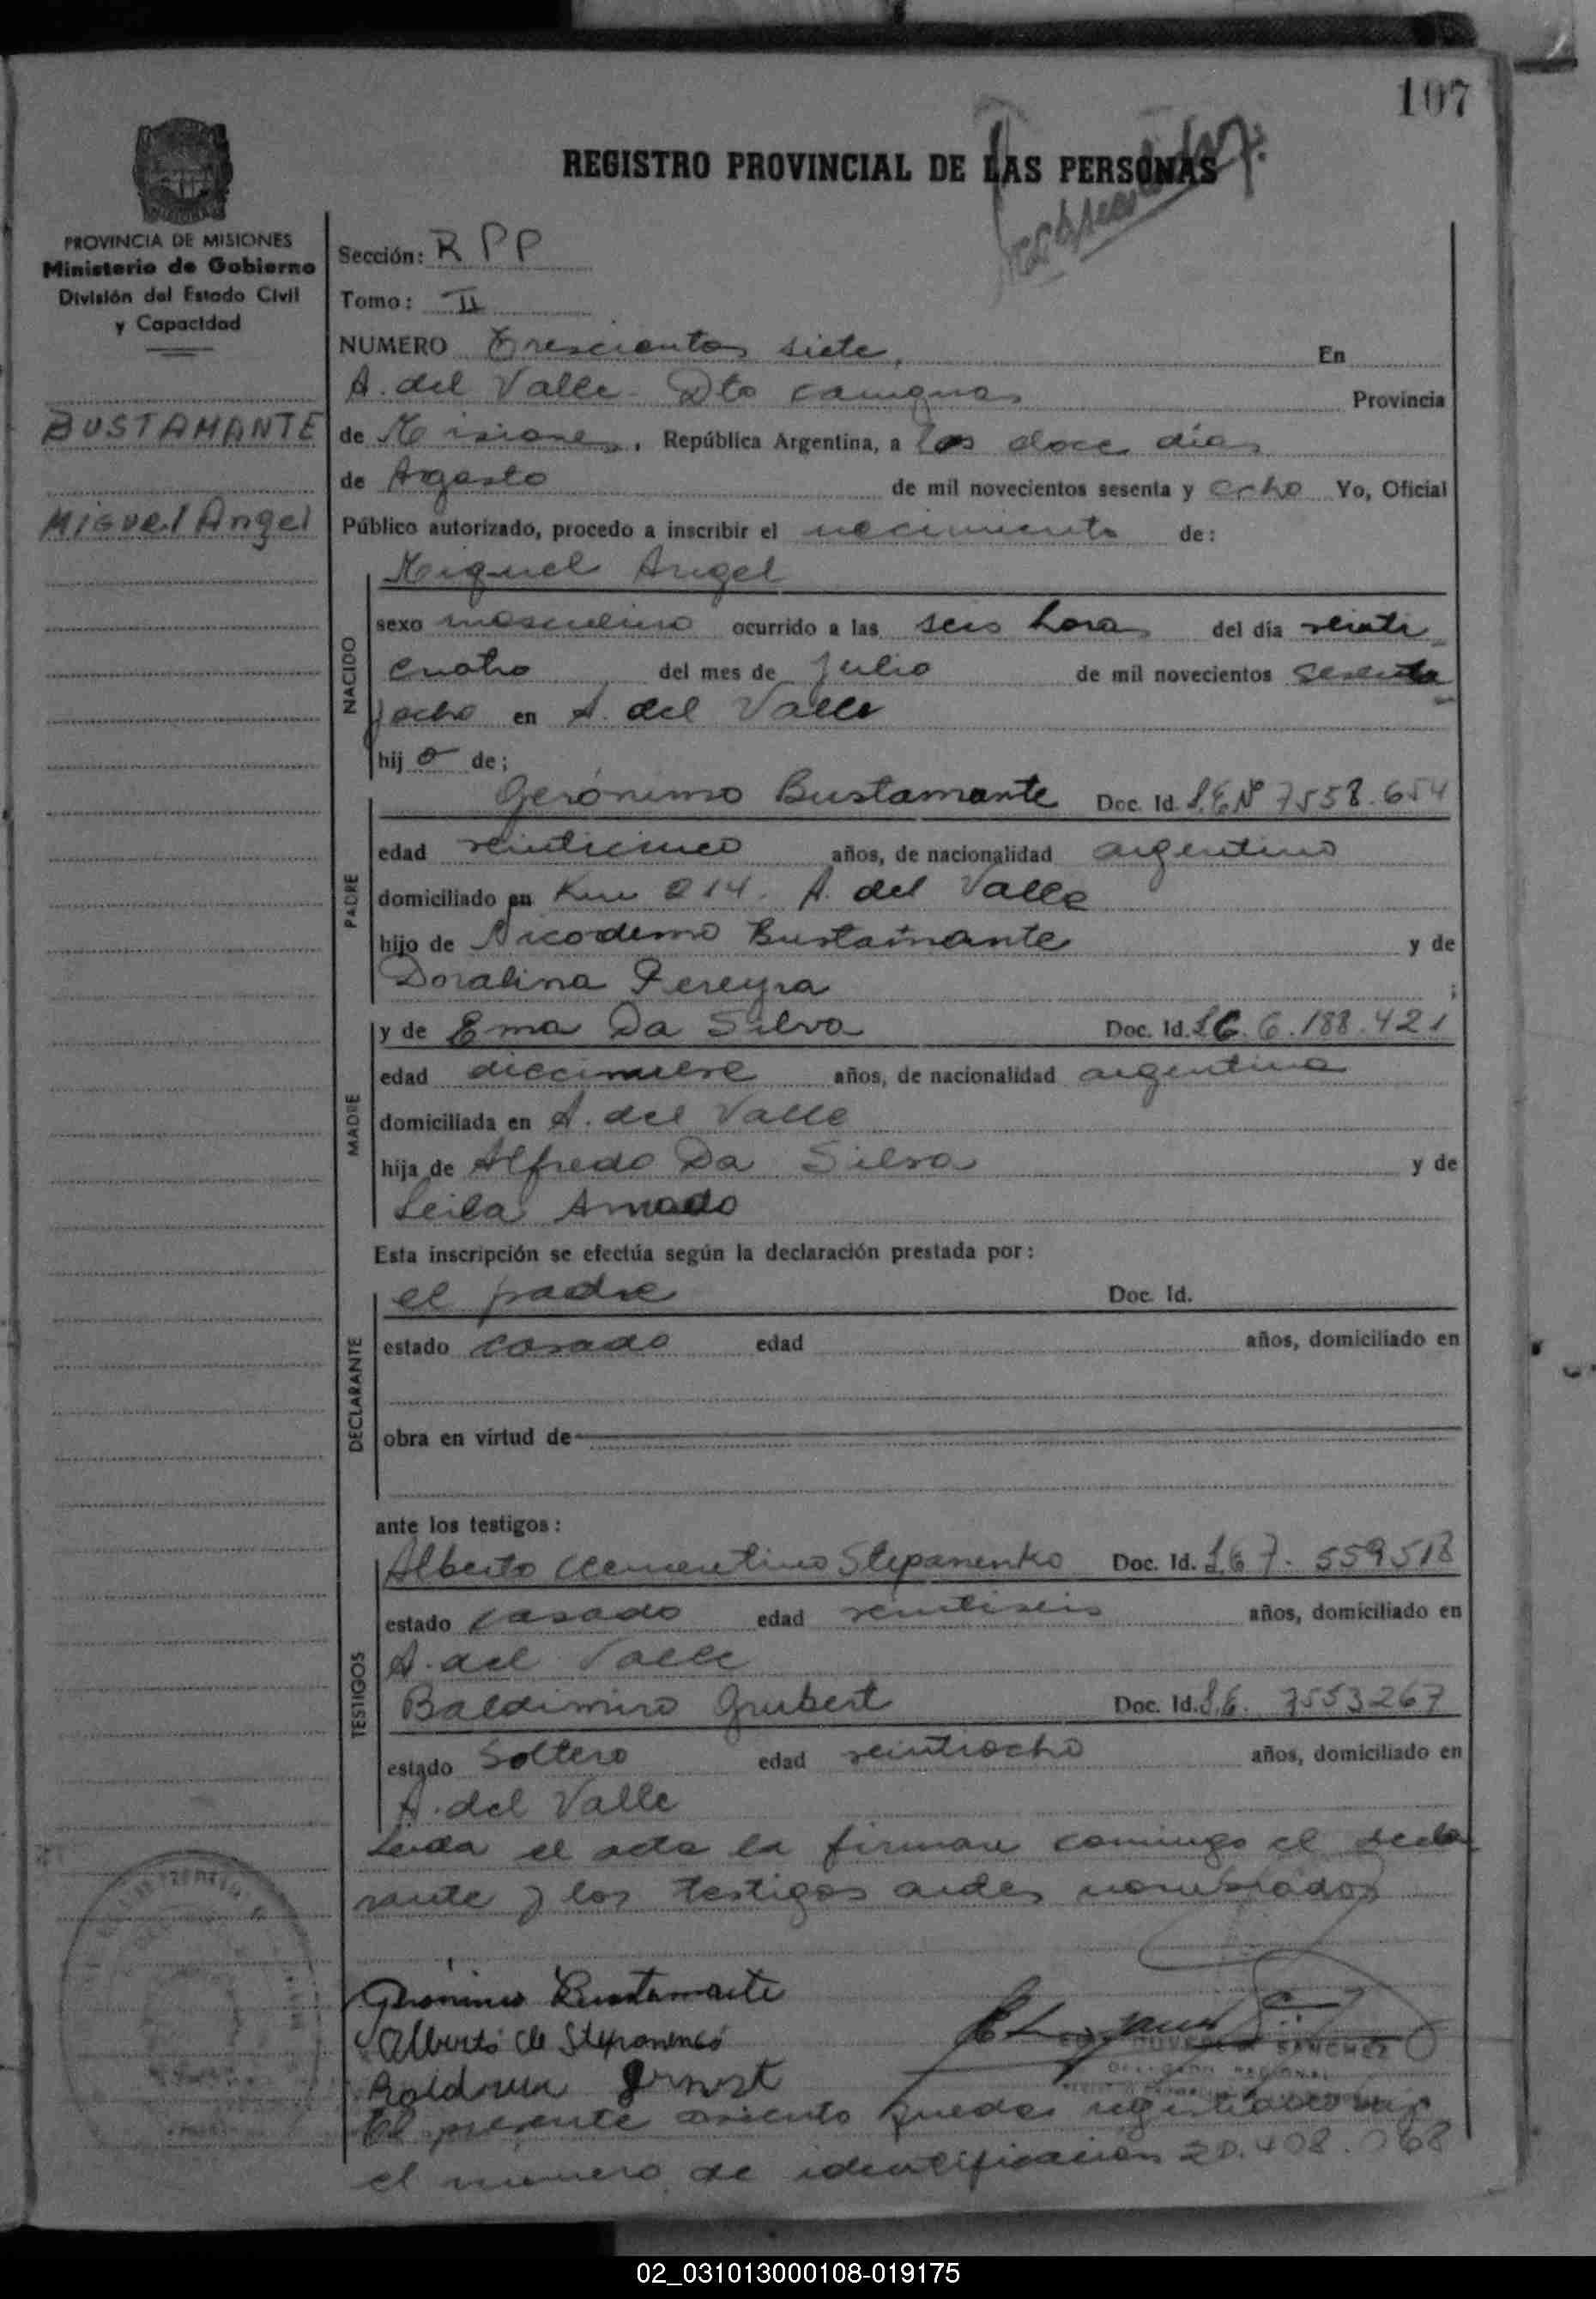 107
REGISTRO PROVINCIAL DE LAS PERSONAS
PROVINCIA DE MISIONES
Ministerio de Gobierno
División del Estado Civil
y Capacidad
BUSTAMANTE
Miguel Angel
Sección: R P P
Tomo: II
NUMERO Trescientos siete, En
A. del Valle - Dto Cainguas Provincia
de Misiones, República Argentina, a los doce días
de Agosto de mil novecientos sesenta y ocho Yo, Oficial
Público autorizado, procedo a inscribir el nacimiento de:
NACIDO
Miguel Angel
sexo masculino ocurrido a las seis horas del día veinti
cuatro del mes de Julio de mil novecientos sesenta
y ocho en A. del Valle
hijo de;
PADRE
Gerónimo Bustamante Doc. Id. L.E Nº 7558.654
edad veinticinco años, de nacionalidad argentino
domiciliado en Km 214. A. del Valle
hijo de Nicodemo Bustamante y de
Doralina Pereyra ;
MADRE
y de Ema Da Silva Doc. Id. L.C. 6.188.421
edad diecinueve años, de nacionalidad argentina
domiciliada en A. del Valle
hija de Alfredo Da Silva y de
Leila Amado
Esta inscripción se efectúa según la declaración prestada por:
DECLARANTE
el padre Doc. Id.
estado casado edad años, domiciliado en
obra en virtud de
ante los testigos:
TESTIGOS
Alberto Clementino Stepanenko Doc. Id. L.E 7. 559518
estado casado edad veintiseis años, domiciliado en
A. del Valle
Baldimiro Grubert Doc. Id. L.E. 7553267
estado Soltero edad veintiocho años, domiciliado en
A. del Valle
Leida el acta la firman conmigo el decla
rante y los testigos antes nombrados
Gerónimo Bustamante
Alberto Cle Stepanenco
SANCHEZ
El presente asiento queda registrado bajo
el numero de identificacion 20.408.068
02_031013000108-019175